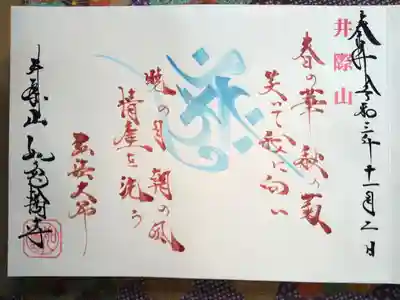 奉拝 令和三年十一月二日
井際山
春の華 秋の菊
笑いて我に向い
暁の月 朝の風
情塵を洗う
弘法大師
井際山